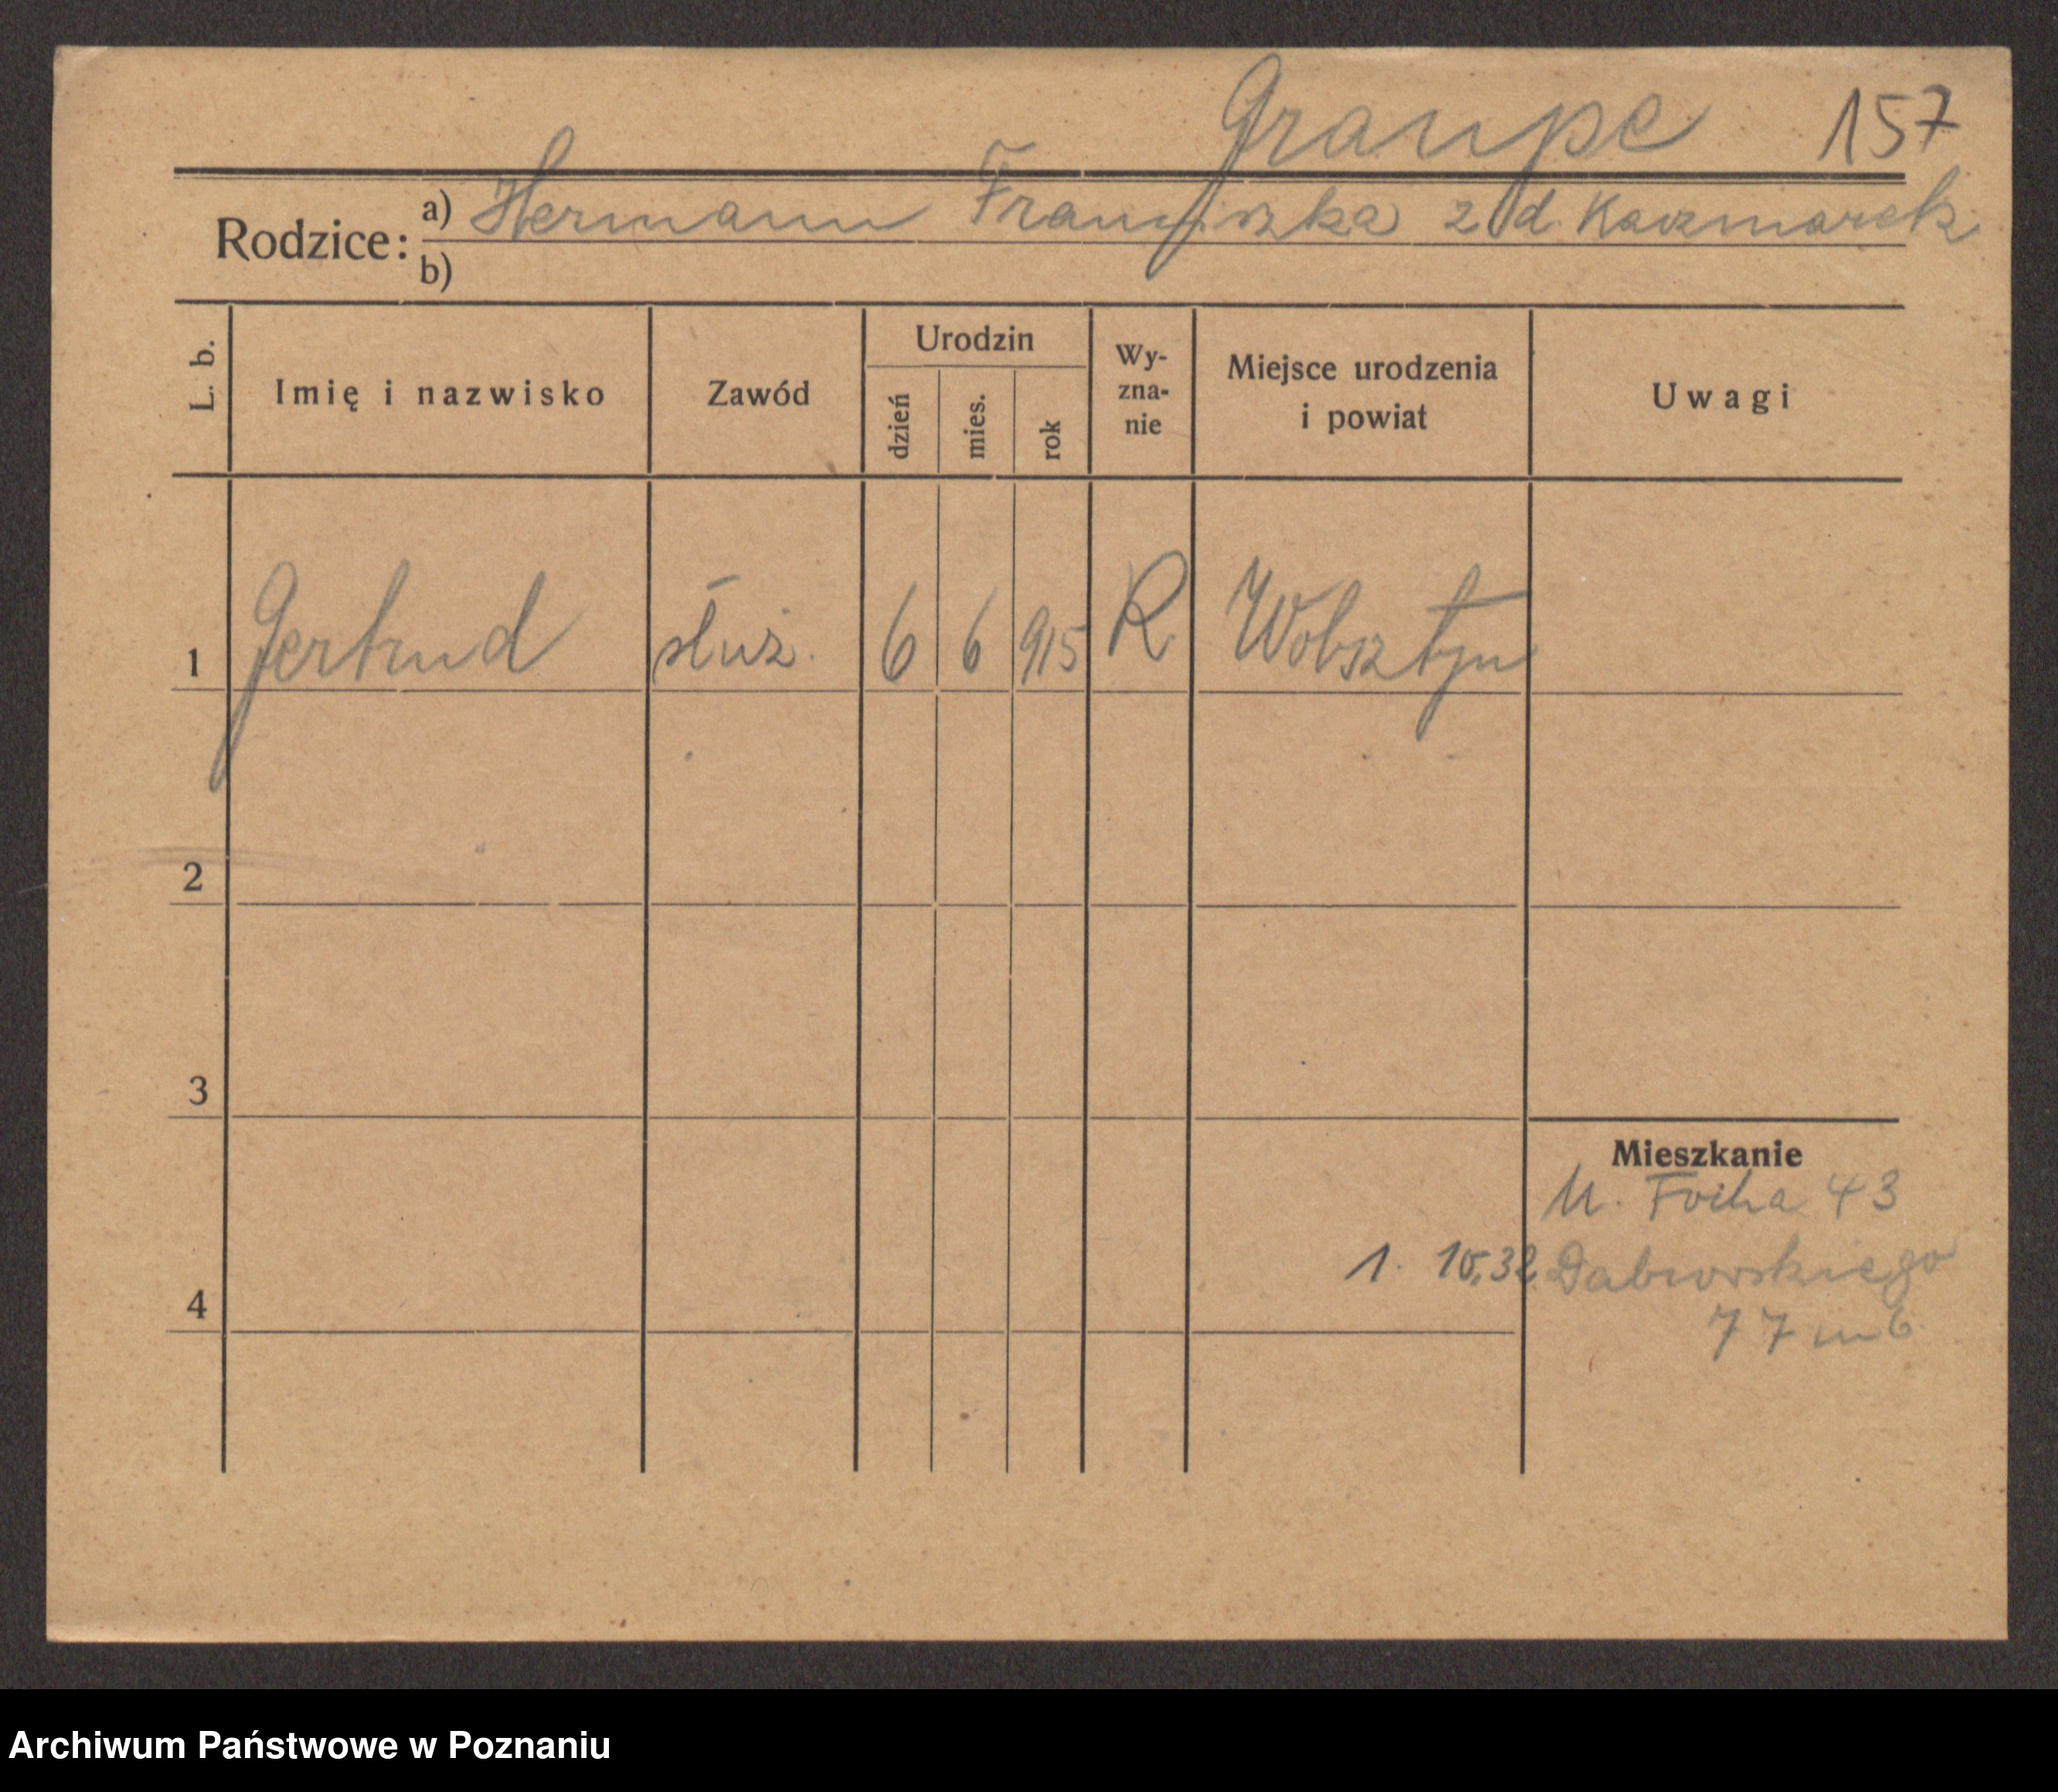 Graupe 157
Rodzice: a) Hermann Franciszka z d. Kaczmarek
b)
L. b. Imię i nazwisko Zawód Urodzin dzień mies. rok Wy-zna-nie Miejsce urodzenia i powiat Uwagi
1 Gertrud służ. 6 6 915 R Wolsztyn
2
3
Mieszkanie
M. Focha 43
4 1. 10.32. Dabrowskiego
77 m 6
Archiwum Państwowe w Poznaniu